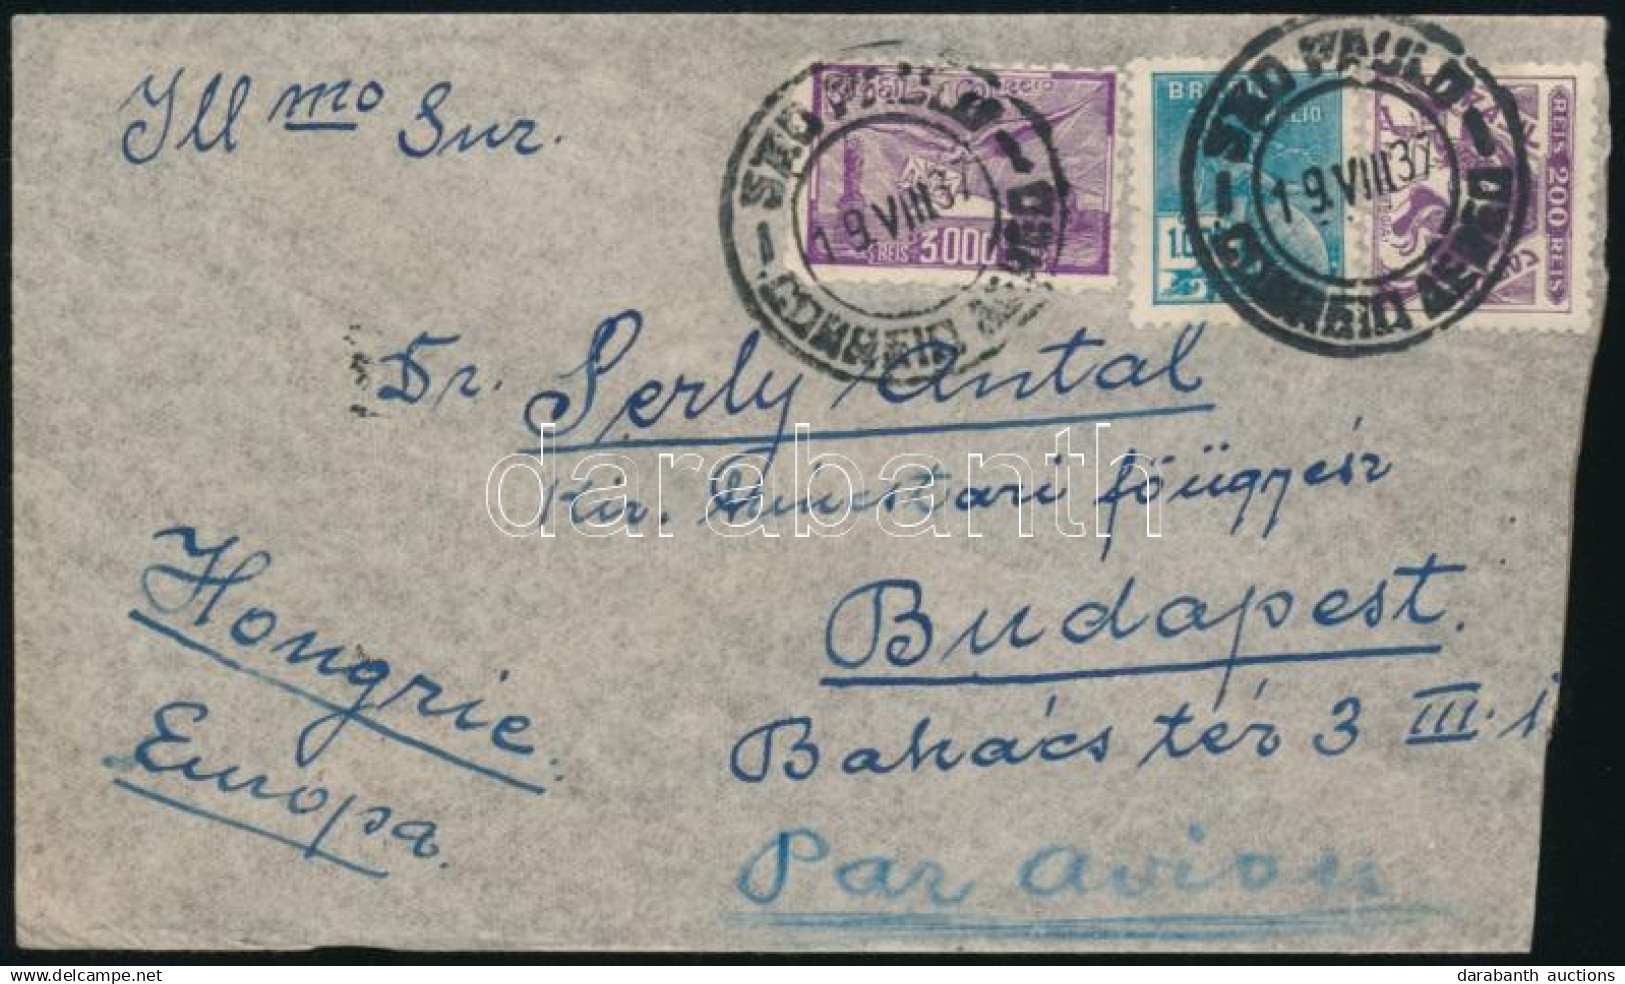 Ill mo Snr.
Brasil Correio
REIS 3.000
BRASIL
CORREIO
REIS 200 REIS
S. PAULO
19.VIII.37
CORREIO AEREO
S. PAULO
19.VIII.37
CORREIO AEREO
Dr. Serly Antal
Kir. kincstári főügyész
Budapest.
Bakács tér 3 III. 1
Hongrie
Europa.
Par avion
darabanth
www.delcampe.net
darabanth auctions